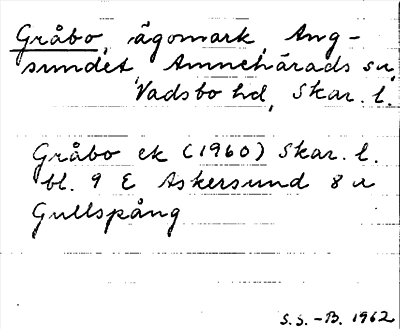 Gråbo, ägomark, Äng-
sundet, Amnehärads sn,
Vadsbo hd, Skar. l.
Gråbo ek (1960) Skar. l.
bl. 9 E Askersund 8 u
Gullspång
S.S.-B. 1962